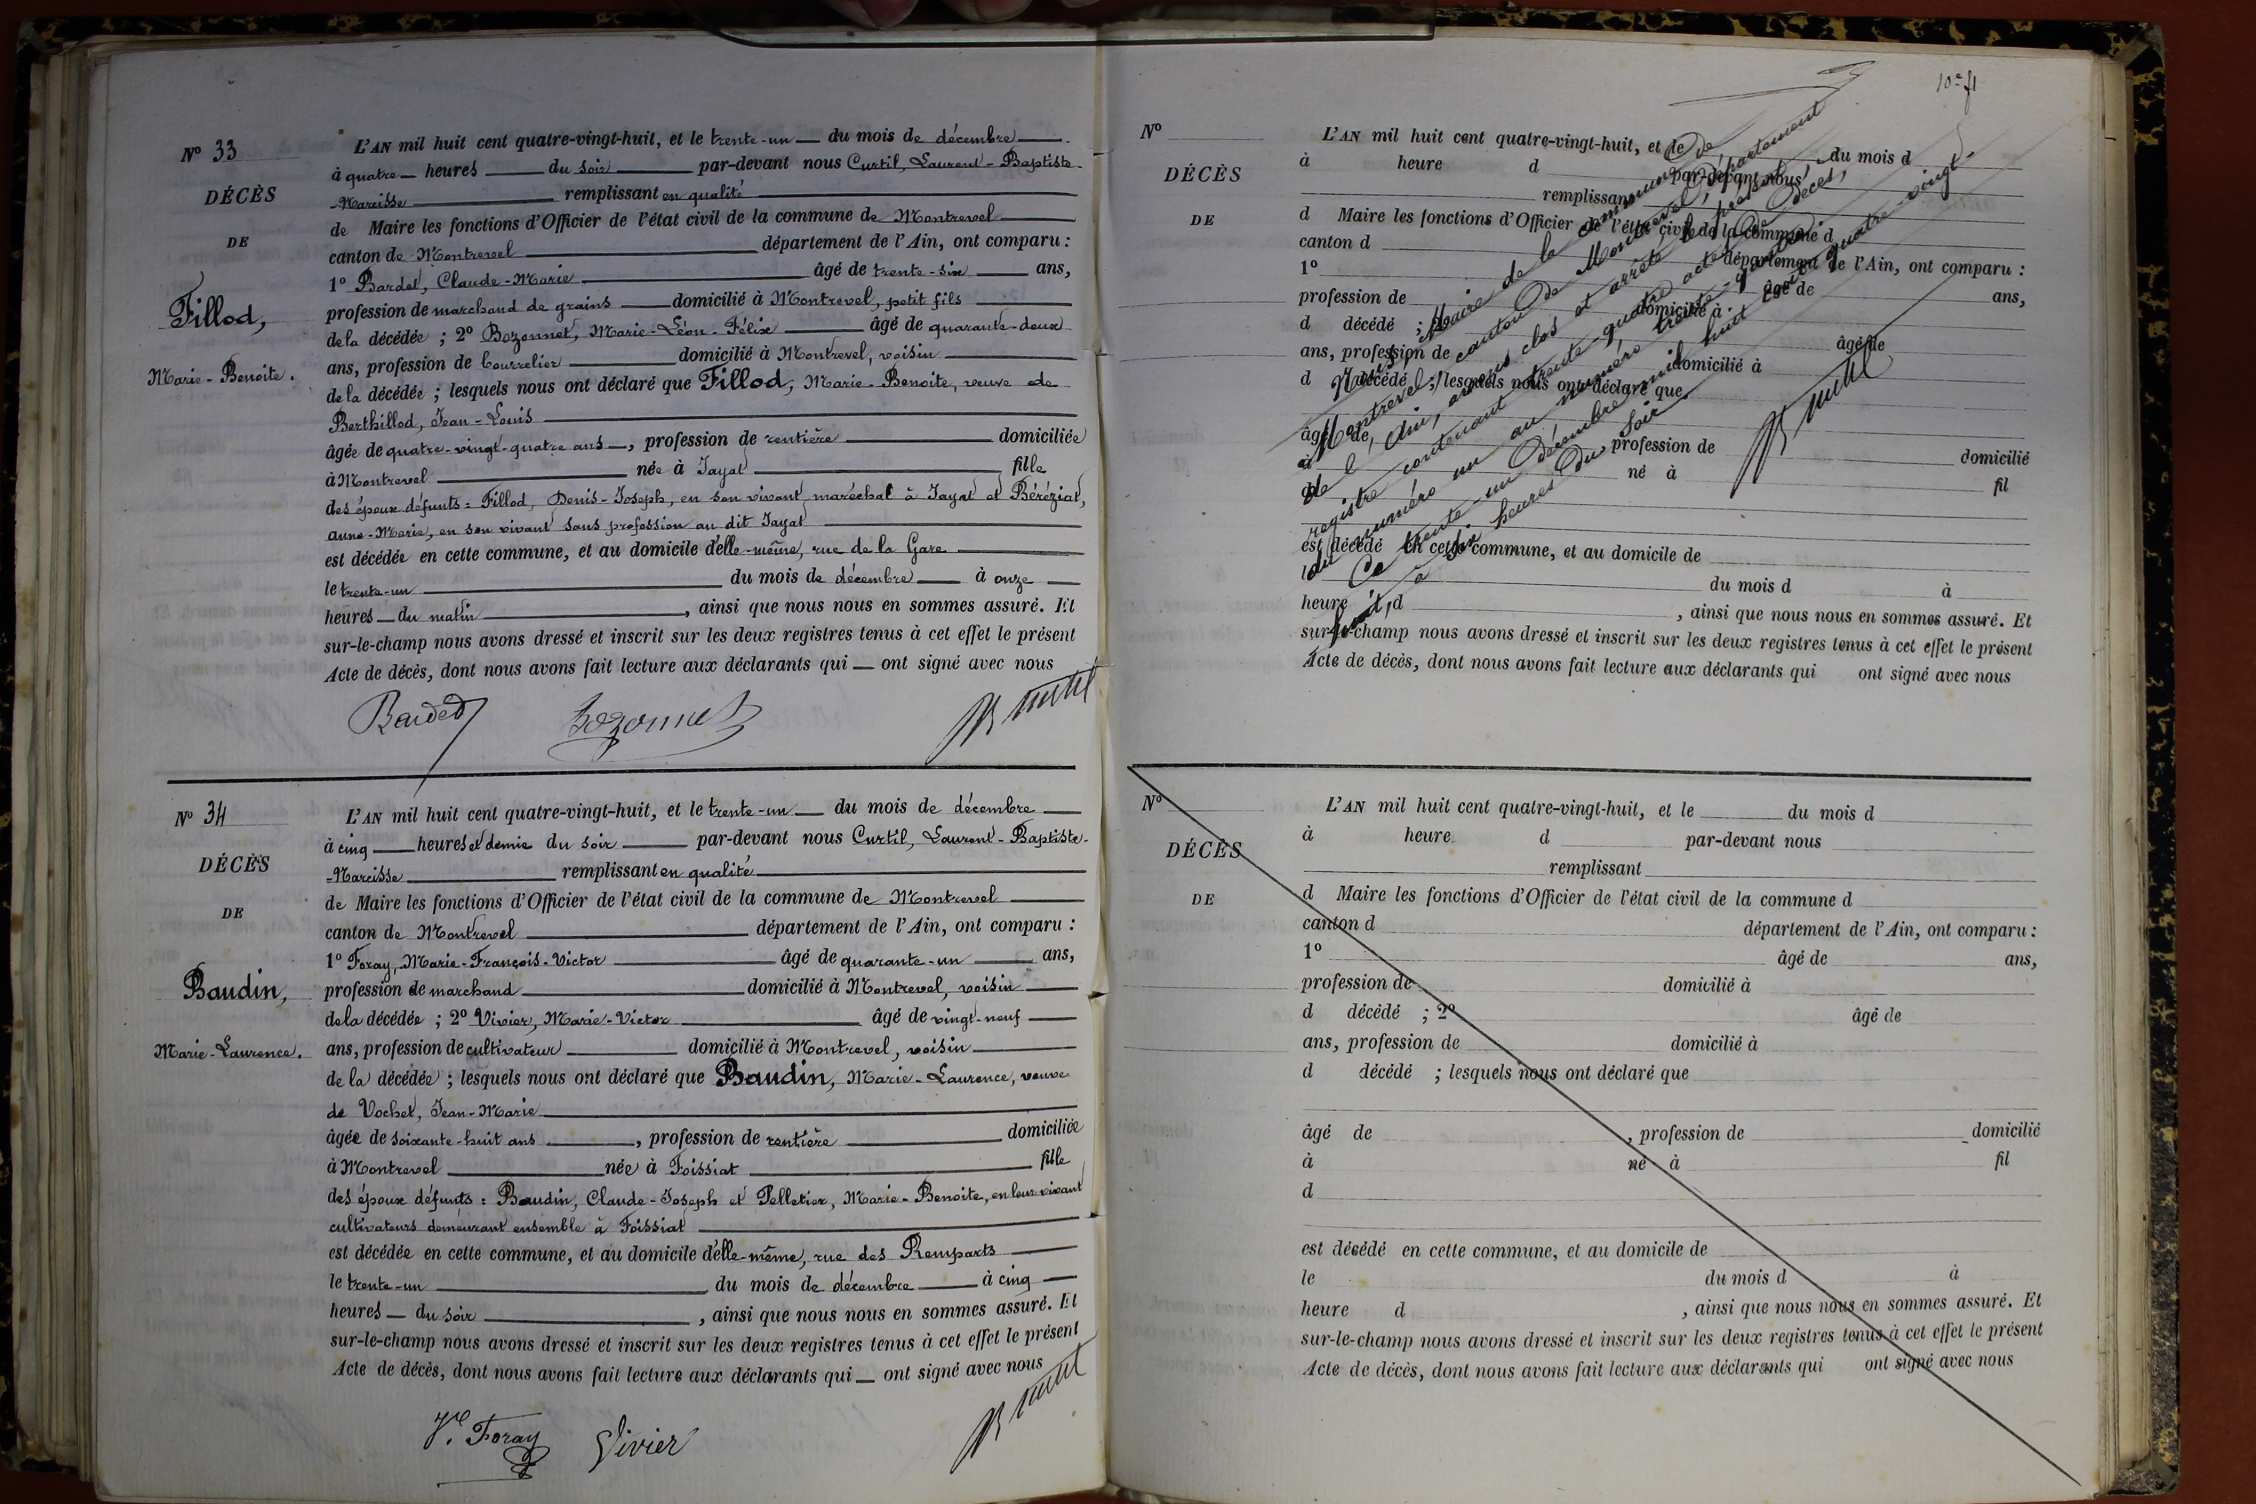 N° 33
DÉCÈS
DE
Fillod,
Marie-Benoite.
L'AN mil huit cent quatre-vingt-huit, et le trente-un du mois de décembre
à quatre heures du soir par-devant nous Curtil, Laurent-Baptiste-
-Narcisse remplissant en qualité
de Maire les fonctions d'Officier de l'état civil de la commune de Montrevel
canton de Montrevel département de l'Ain, ont comparu :
1° Bardet, Claude-Marie âgé de trente-six ans,
profession de marchand de grains domicilié à Montrevel, petit fils
de la décédée ; 2° Bozonnet, Marie-Léon-Félix âgé de quarante-deux
ans, profession de bourrelier domicilié à Montrevel, voisin
de la décédée ; lesquels nous ont déclaré que Fillod, Marie-Benoite, veuve de
Berthillod, Jean-Louis
âgée de quatre-vingt-quatre ans, profession de rentière domiciliée
à Montrevel née à Jayat fille
des époux défunts : Fillod, Denis-Joseph, en son vivant maréchal à Jayat et Béréziat,
anne-Marie, en son vivant sans profession au dit Jayat
est décédée en cette commune, et au domicile d'elle-même, rue de la Gare
le trente-un du mois de décembre à onze
heures du matin, ainsi que nous nous en sommes assuré. Et
sur-le-champ nous avons dressé et inscrit sur les deux registres tenus à cet effet le présent
Acte de décès, dont nous avons fait lecture aux déclarants qui ont signé avec nous
Bardet Bozonnet B Curtil
N° 34
DÉCÈS
DE
Baudin,
Marie-Laurence.
L'AN mil huit cent quatre-vingt-huit, et le trente-un du mois de décembre
à cinq heures et demie du soir par-devant nous Curtil, Laurent-Baptiste-
-Narcisse remplissant en qualité
de Maire les fonctions d'Officier de l'état civil de la commune de Montrevel
canton de Montrevel département de l'Ain, ont comparu :
1° Foray, Marie-François-Victor âgé de quarante-un ans,
profession de marchand domicilié à Montrevel, voisin
de la décédée ; 2° Vivier, Marie-Victor âgé de vingt-neuf
ans, profession de cultivateur domicilié à Montrevel, voisin
de la décédée ; lesquels nous ont déclaré que Baudin, Marie-Laurence, veuve
de Vochet, Jean-Marie
âgée de soixante-huit ans, profession de rentière domiciliée
à Montrevel née à Foissiat fille
des époux défunts : Baudin, Claude-Joseph et Pelletier, Marie-Benoite, en leur vivant
cultivateurs demeurant ensemble à Foissiat
est décédée en cette commune, et au domicile d'elle-même, rue des Remparts
le trente-un du mois de décembre à cinq
heures du soir, ainsi que nous nous en sommes assuré. Et
sur-le-champ nous avons dressé et inscrit sur les deux registres tenus à cet effet le présent
Acte de décès, dont nous avons fait lecture aux déclarants qui ont signé avec nous
Vr. Foray Vivier B Curtil
10e f1
N°
DÉCÈS
DE
L'AN mil huit cent quatre-vingt-huit, et le du mois d
à heure d par-devant nous
remplissant
d Maire les fonctions d'Officier de l'état civil de la commune d
canton d département de l'Ain, ont comparu :
1° âgé de ans,
profession de domicilié à
d décédé ; 2° âgé de
ans, profession de domicilié à
d décédé ; lesquels nous ont déclaré que
âgé de, profession de domicilié
à né à fil
d
est décédé en cette commune, et au domicile de
le du mois d à
heure d, ainsi que nous nous en sommes assuré. Et
sur-le-champ nous avons dressé et inscrit sur les deux registres tenus à cet effet le présent
Acte de décès, dont nous avons fait lecture aux déclarants qui ont signé avec nous
Nous, Maire de la commune de
Montrevel, canton de Montrevel, département
de l'Ain, avons clos et arrêté le présent
registre contenant trente-quatre actes de décès,
du numéro un au numéro trente-quatre.
Ce trente-un décembre mil huit cent quatre-vingt-
huit, à six heures du soir.
B Curtil
N°
DÉCÈS
DE
L'AN mil huit cent quatre-vingt-huit, et le du mois d
à heure d par-devant nous
remplissant
d Maire les fonctions d'Officier de l'état civil de la commune d
canton d département de l'Ain, ont comparu :
1° âgé de ans,
profession de domicilié à
d décédé ; 2° âgé de
ans, profession de domicilié à
d décédé ; lesquels nous ont déclaré que
âgé de, profession de domicilié
à né à fil
d
est décédé en cette commune, et au domicile de
le du mois d à
heure d, ainsi que nous nous en sommes assuré. Et
sur-le-champ nous avons dressé et inscrit sur les deux registres tenus à cet effet le présent
Acte de décès, dont nous avons fait lecture aux déclarants qui ont signé avec nous